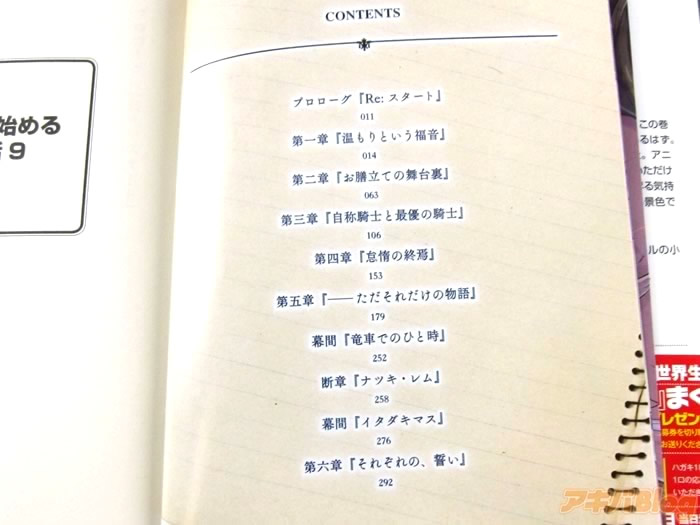 CONTENTS
プロローグ『Re: スタート』
011
第一章『温もりという福音』
014
第二章『お膳立ての舞台裏』
063
第三章『自称騎士と最優の騎士』
106
第四章『怠惰の終焉』
153
第五章『――ただそれだけの物語』
179
幕間『竜車でのひと時』
252
断章『ナツキ・レム』
258
幕間『イタダキマス』
276
第六章『それぞれの、誓い』
292
始める
9
この巻
るはず。
アニ
いただけ
る気持
景色で
ルの小
世界生
』まぐ
プレゼン
募券を切り
お送りくださ
ハガキ1
1口の応
いただき
アキバBlog